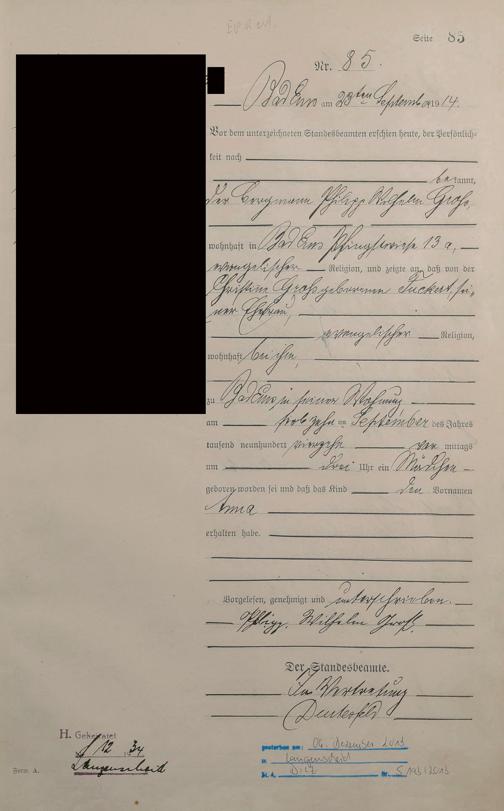 Seite 85
Nr. 85.
Bad Ems am 23ten September 1914.
Vor dem unterzeichneten Standesbeamten erschien heute, der Persönlich-
keit nach
bekannt,
der Bergmann Philipp Wilhelm Groß,
wohnhaft in Bad Ems Pfingstwiese 13 a,
evangelischer Religion, und zeigte an, daß von der
Christine Groß geborenen Tuckert, sei-
ner Ehefrau,
evangelischer Religion,
wohnhaft bei ihm,
zu Bad Ems, in seiner Wohnung
am September des Jahres
tausend neunhundert vierzehn vormittags
um drei Uhr ein Mädchen
geboren worden sei und daß das Kind den Vornamen
Anna
erhalten habe.
Vorgelesen, genehmigt und unterschrieben.
Philipp Wilhelm Groß.
Der Standesbeamte.
In Vertretung
H. Geheiratet
12 34
Langenscheid
Form. A.
gestorben am: 06. Dezember 2013
in Langenscheid
St. A. Diez Nr. S